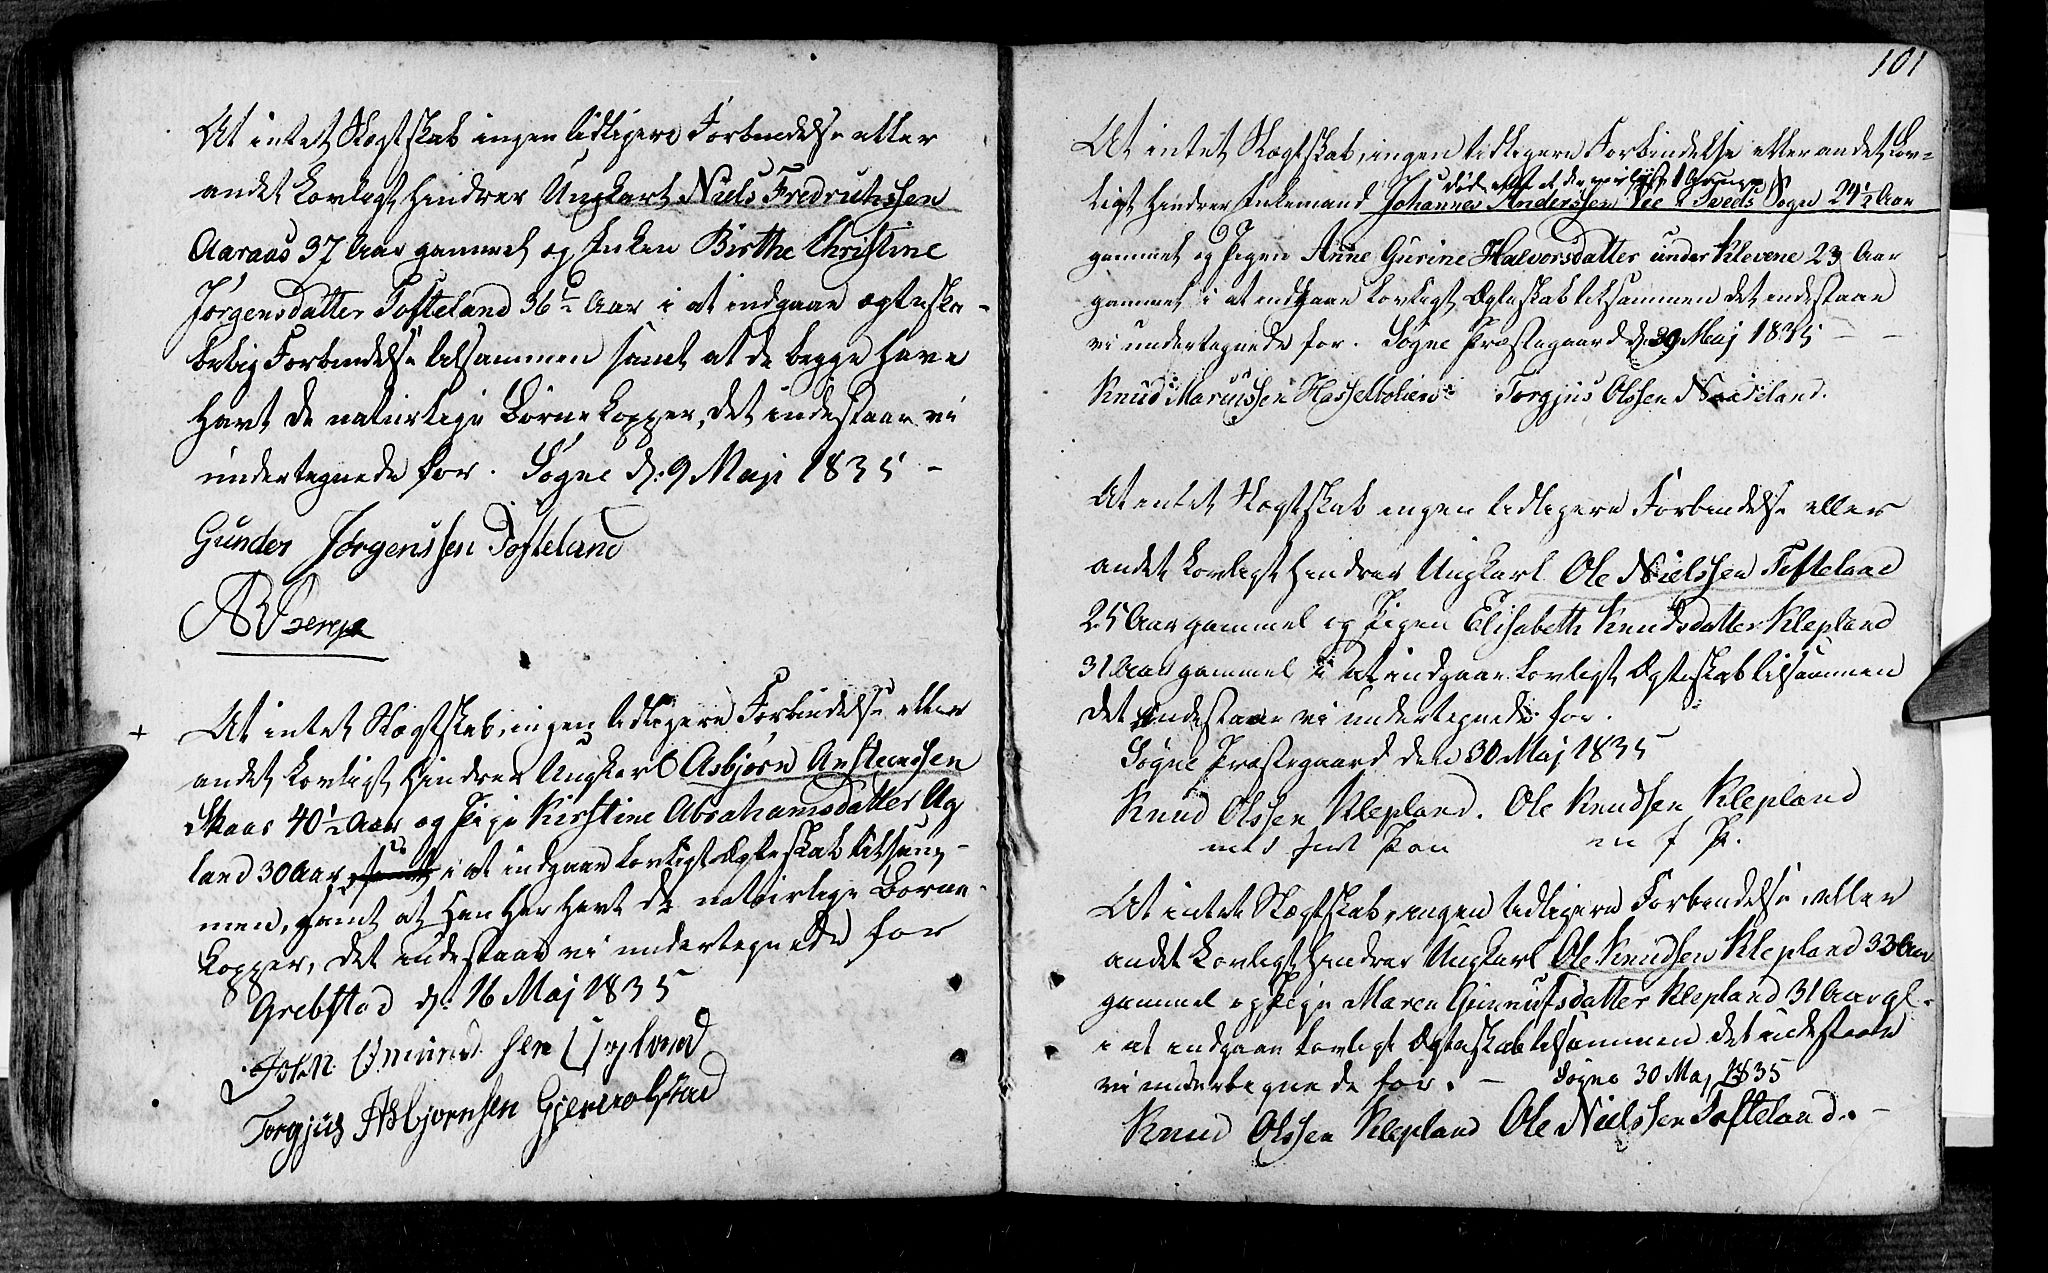 At intet Slægtskab ingen tidligere Forbindelse eller
andet lovligt hindrer Ungkarl Niels Fredrichssen
Aaraas 37 Aar gammel og Enken Birthe Christine
Jørgensdatter Tofteland 36½ Aar i at indgaae ægteska-
belig Forbindelse tilsammen samt at de begge have
havt de naturlige Børnekopper, det indestaar vi
undertegnede for. Søgne d. 9 Maji 1835 -
Gunder Jørgenssen Tofteland
+ At intet Slægtskab, ingen tidligere Forbindelse eller
andet lovligt hindrer Ungkarl Asbjørn Aasteensen
Skaar 40½ Aar og Pige Kirstine Abrahamsdatter Ug
land 30 Aar i at indgaae lovligt Ægteskab tilsam-
men, samt at han har havt de naturlige Børne-
kopper, det indestaar vi undertegnede for
Grebstad d. 16 Maj 1835
Omund sen Ugland
Torgjus Asbjørnsen
101
At intet Slægtskab, ingen tidligere Forbindelse eller andet lov-
døde efter at der var lyst 1 Gang
ligt hindrer Enkemand Johannes Anderssen Vee i Tveds Sogn 24½ Aar
gammel og Pigen Anne Gurine Halvorsdatter under Klevene 23 Aar
gammel i at indgaae lovligt Ægteskab tilsammen det indestaae
vi undertegnede for. Søgne Præstegaard d. 29 Maj 1835 - -
Knud Marcussen Torgjus Olssen
At intet Slægtskab ingen tidligere Forbindelse eller
andet lovligt hindrer Ungkarl Ole Nielssen Tofteland
25 Aar gammel og Pigen Elisabeth Knudsdatter Klepland
31 Aar gammel i at indgaae lovligt Ægteskab tilsammen
det indestaae vi undertegnede for.
Søgne Præstegaard den 30 Maj 1835
Knud Olssen Klepland. Ole Knudsen Klepland
med ført Pen m f P.
At intet Slægtskab, ingen tidligere Forbindelse eller
andet lovligt hindrer Ungkarl Ole Knudsen Klepland 33 Aar
gammel og Pige Maren Gunnufsdatter Klepland 31 Aar gl.
i at indgaae lovligt Ægteskab tilsammen det indestaae
vi undertegnede for. - Søgne 30 Maj 1835
Knud Olssen Klepland Ole Nielssen Tofteland. -